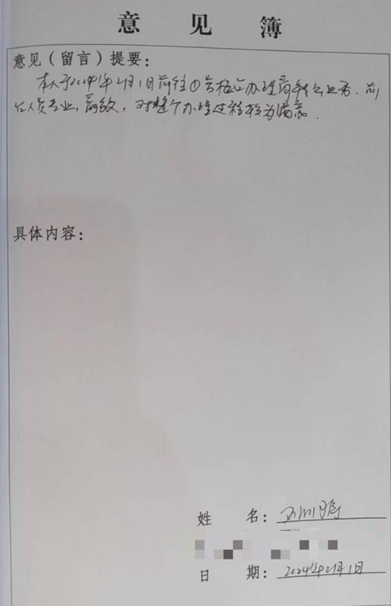 意见簿
意见（留言）提要：
本人于2024年2月1日前往 办理 业务，前
台人员专业，高效，对整个办理过程较为满意.
具体内容：
姓 名：
日 期：2024年2月1日